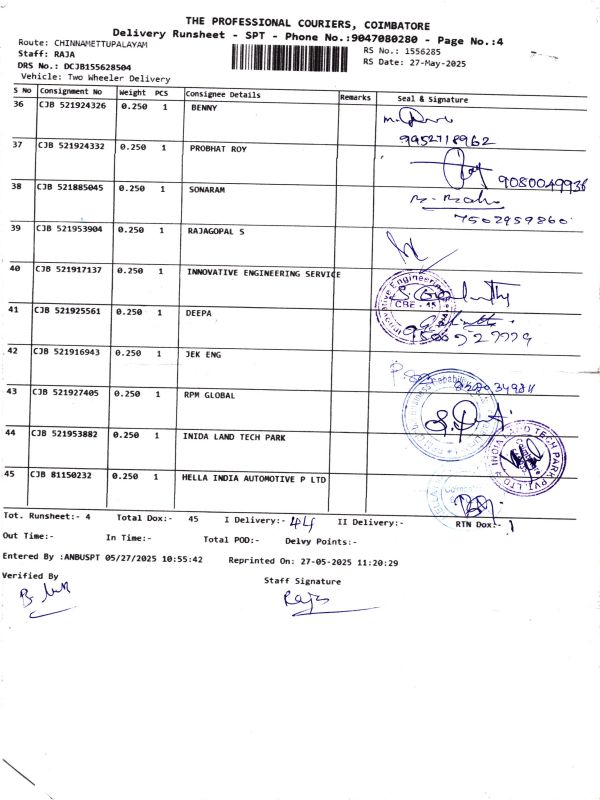 THE PROFESSIONAL COURIERS, COIMBATORE
Delivery Runsheet - SPT - Phone No.:9047080280 - Page No.:4
Route: CHINNAMETTUPALAYAM
RS No.: 1556285
Staff: RAJA
RS Date: 27-May-2025
DRS No.: DCJB155628504
Vehicle: Two Wheeler Delivery
S No Consignment No Weight PCS Consignee Details Remarks Seal & Signature
36 CJB 521924326 0.250 1 BENNY
9952718962
37 CJB 521924332 0.250 1 PROBHAT ROY
9080049936
38 CJB 521885045 0.250 1 SONARAM
7502959860
39 CJB 521953904 0.250 1 RAJAGOPAL S
40 CJB 521917137 0.250 1 INNOVATIVE ENGINEERING SERVICE
Innovative Engineering
CBE - 45
41 CJB 521925561 0.250 1 DEEPA
42 CJB 521916943 0.250 1 JEK ENG
43 CJB 521927405 0.250 1 RPM GLOBAL
44 CJB 521953882 0.250 1 INIDA LAND TECH PARK
INDIA LAND TECH PARK PVT. LTD
45 CJB 81150232 0.250 1 HELLA INDIA AUTOMOTIVE P LTD
Tot. Runsheet:- 4 Total Dox:- 45 I Delivery:- 44 II Delivery:- RTN Dox:- 1
Out Time:- In Time:- Total POD:- Delvy Points:-
Entered By :ANBUSPT 05/27/2025 10:55:42 Reprinted On: 27-05-2025 11:20:29
Verified By
Staff Signature
Raja